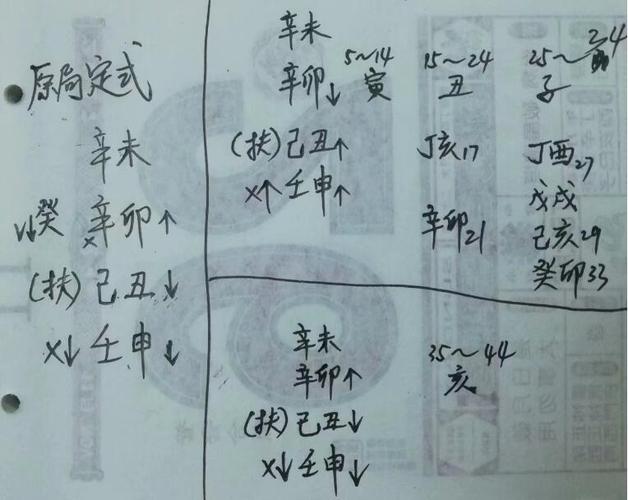 原局定式
辛未
×↓癸 ×辛卯↑
(扶)己丑↓
×↓壬申↓
辛未
辛卯↓
(扶)己丑↑
×↑壬申↑
5~14
寅
15~24
丑
丁亥17
辛卯21
25~34
子
丁酉27
戊戌
己亥29
癸卯33
辛未
辛卯↑
(扶)己丑↓
×↓壬申↓
35~44
亥